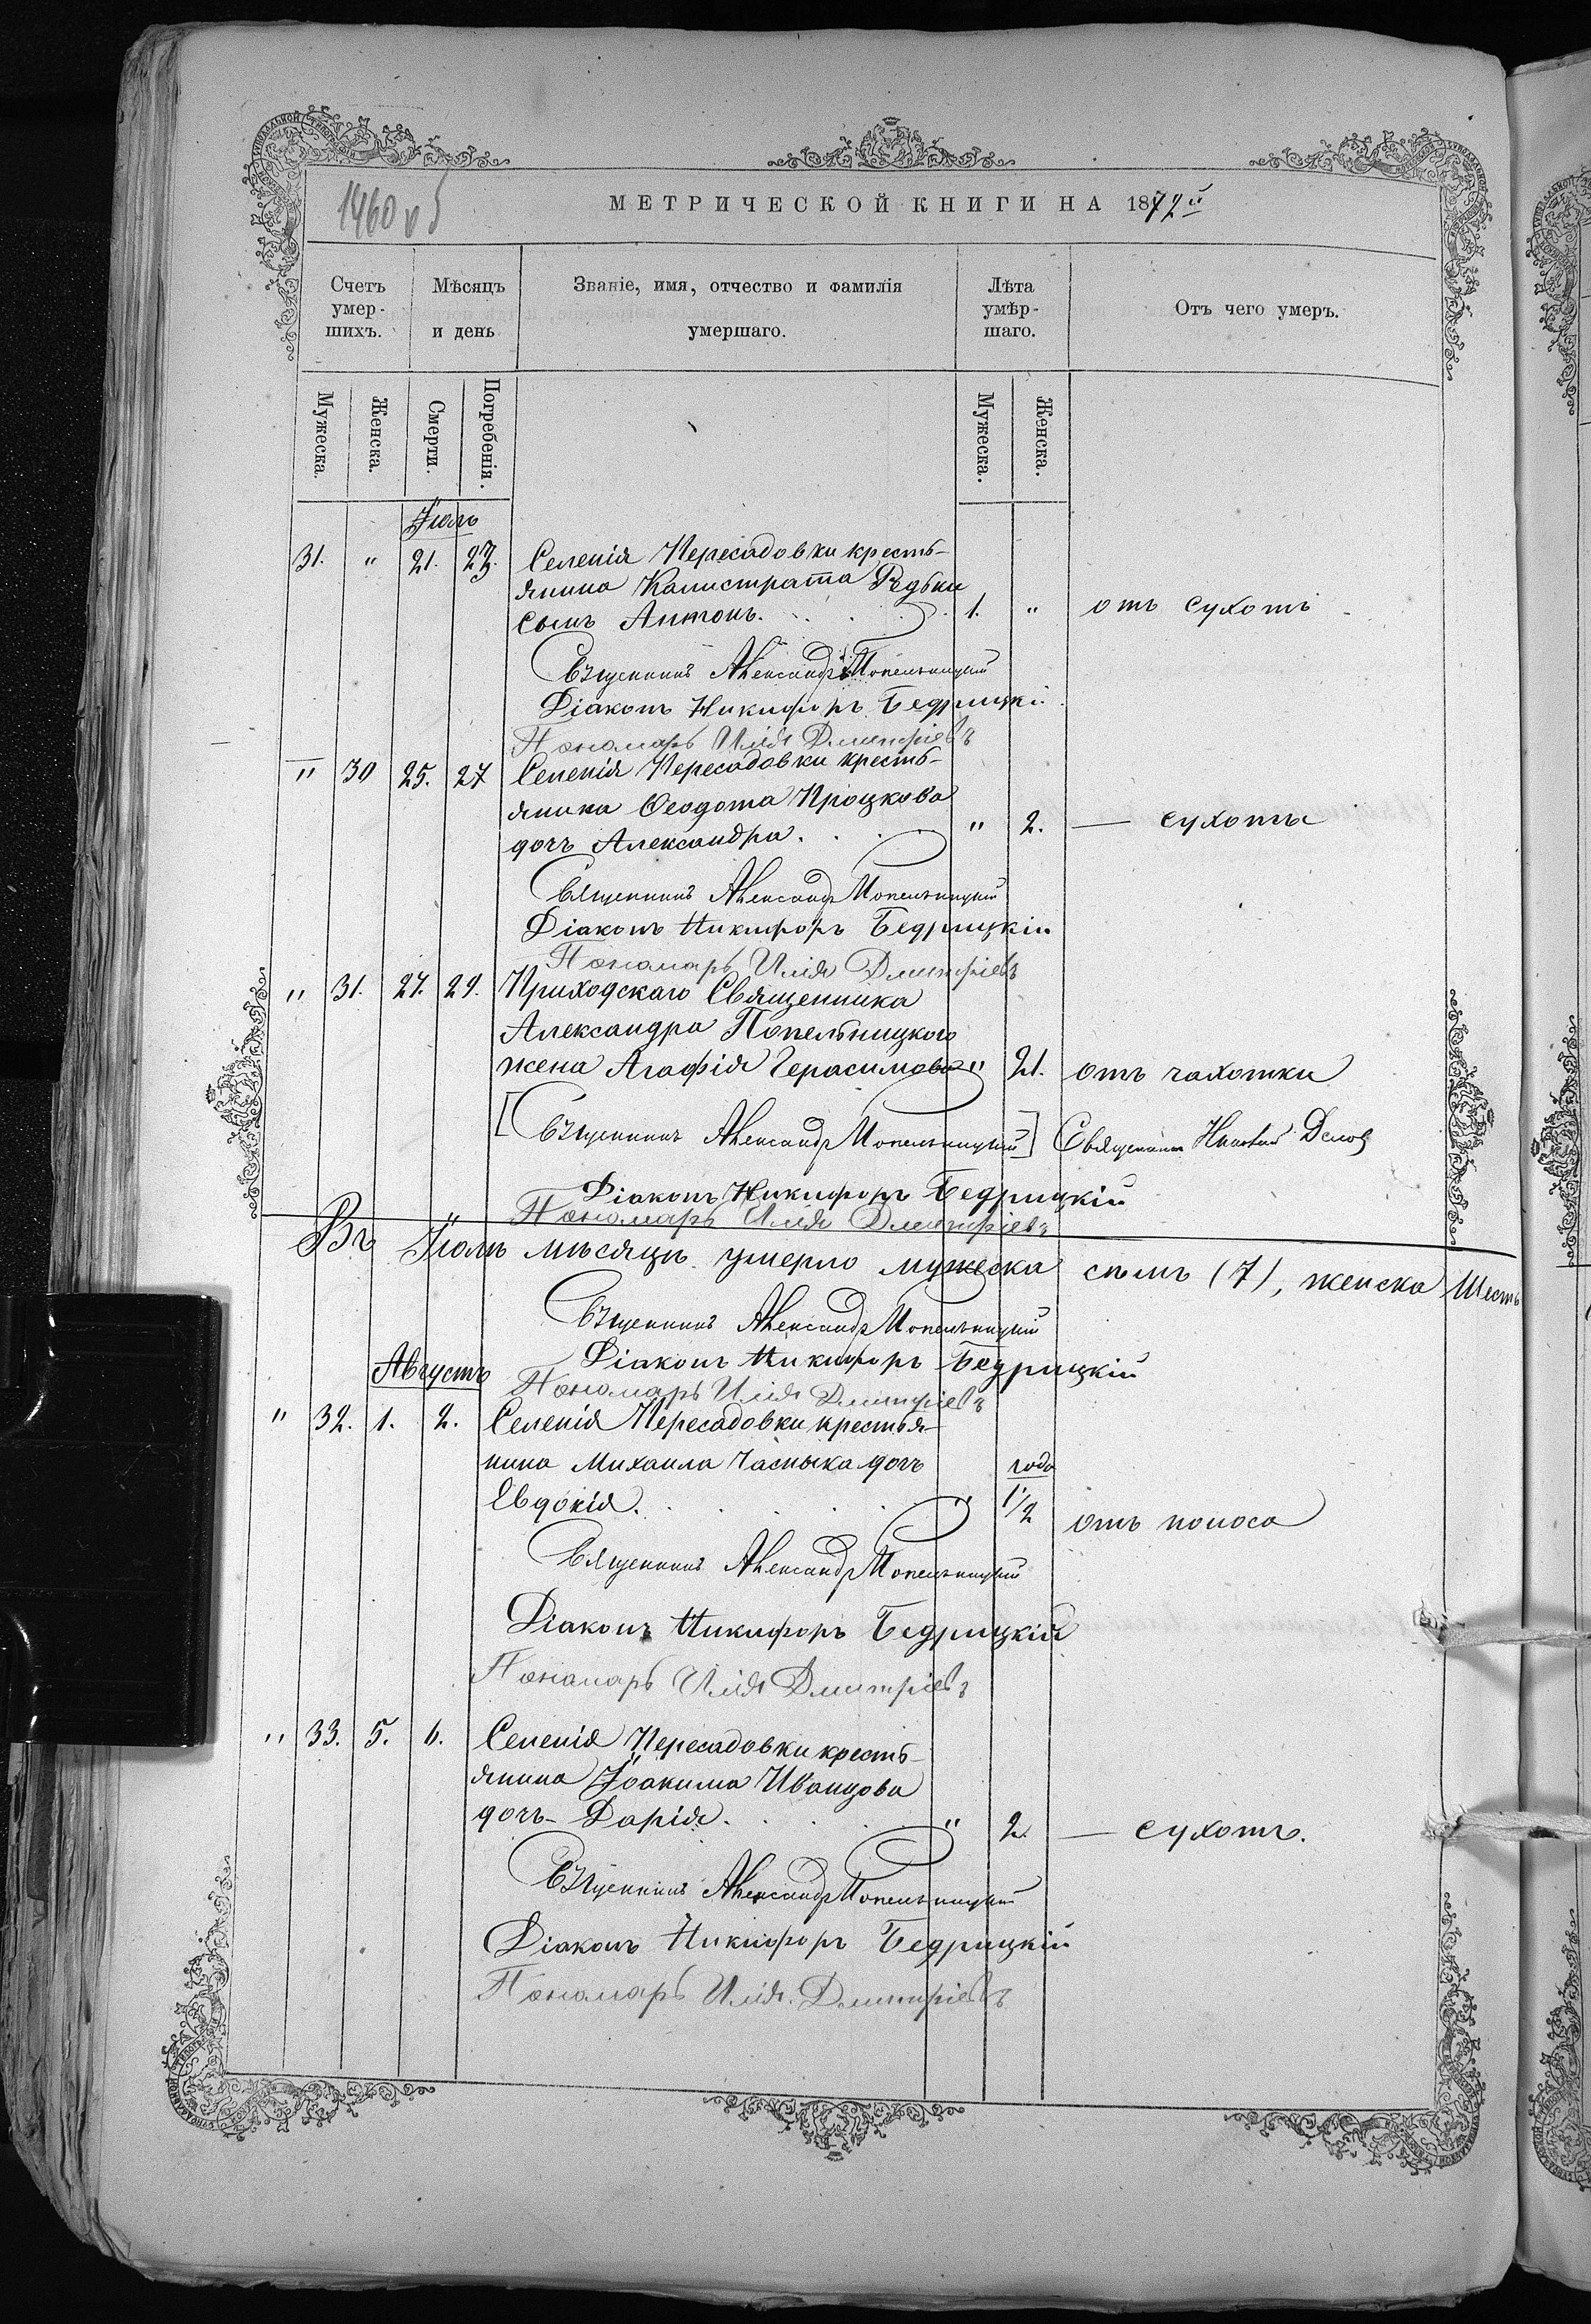 1460 об
МЕТРИЧЕСКОЙ КНИГИ НА 1872й
Счетъ умер-шихъ.
Мѣсяцъ и день
Званіе, имя, отчество и фамилія умершаго.
Лѣта умѣр-шаго.
Отъ чего умеръ.
Мужеска.
Женска.
Смерти.
Погребенія.
Мужеска.
Женска.
Іюль
31. " 21. 23. Селенія Пересадовки кресть-
янина Калистрата Рѣдьки
сынъ Антонъ. 1. " отъ сухотъ
Священникъ Александръ Попельницкій
Діаконъ Никифоръ Бедрицкій
Пономарь Илія Дмитріевъ
" 30 25. 27 Селенія Пересадовки кресть-
янина Ѳеодота Процкова
дочь Александра. " 2. — сухоты
Священникъ Александръ Попельницкій
Діаконъ Никифоръ Бедрицкій
Пономарь Илія Дмитріевъ
" 31. 27. 29. Приходскаго Священника
Александра Попельницкого
жена Агафія Герасимова " 21. отъ чахотки
[Священникъ Александръ Попельницкій] Священникъ
Діаконъ Никифоръ Бедрицкій
Пономарь Илія Дмитріевъ
Въ Іюлѣ мѣсяцѣ умерло мужеска семь (7), женска шесть
Священникъ Александръ Попельницкій
Діаконъ Никифоръ Бедрицкій
Августъ
Пономарь Илія Дмитріевъ
" 32. 1. 2. Селенія Пересадовки крестья-
нина Михаила Часныка дочь
года
Евдокія. " 1/2 отъ поноса
Священникъ Александръ Попельницкій
Діаконъ Никифоръ Бедрицкій
Пономарь Илія Дмитріевъ
" 33. 5. 6. Селенія Пересадовки кресть-
янина Іоакима Иванцова
дочь – Дарія. " 2. — сухотъ.
Священникъ Александръ Попельницкій
Діаконъ Никифоръ Бедрицкій
Пономарь Илія Дмитріевъ